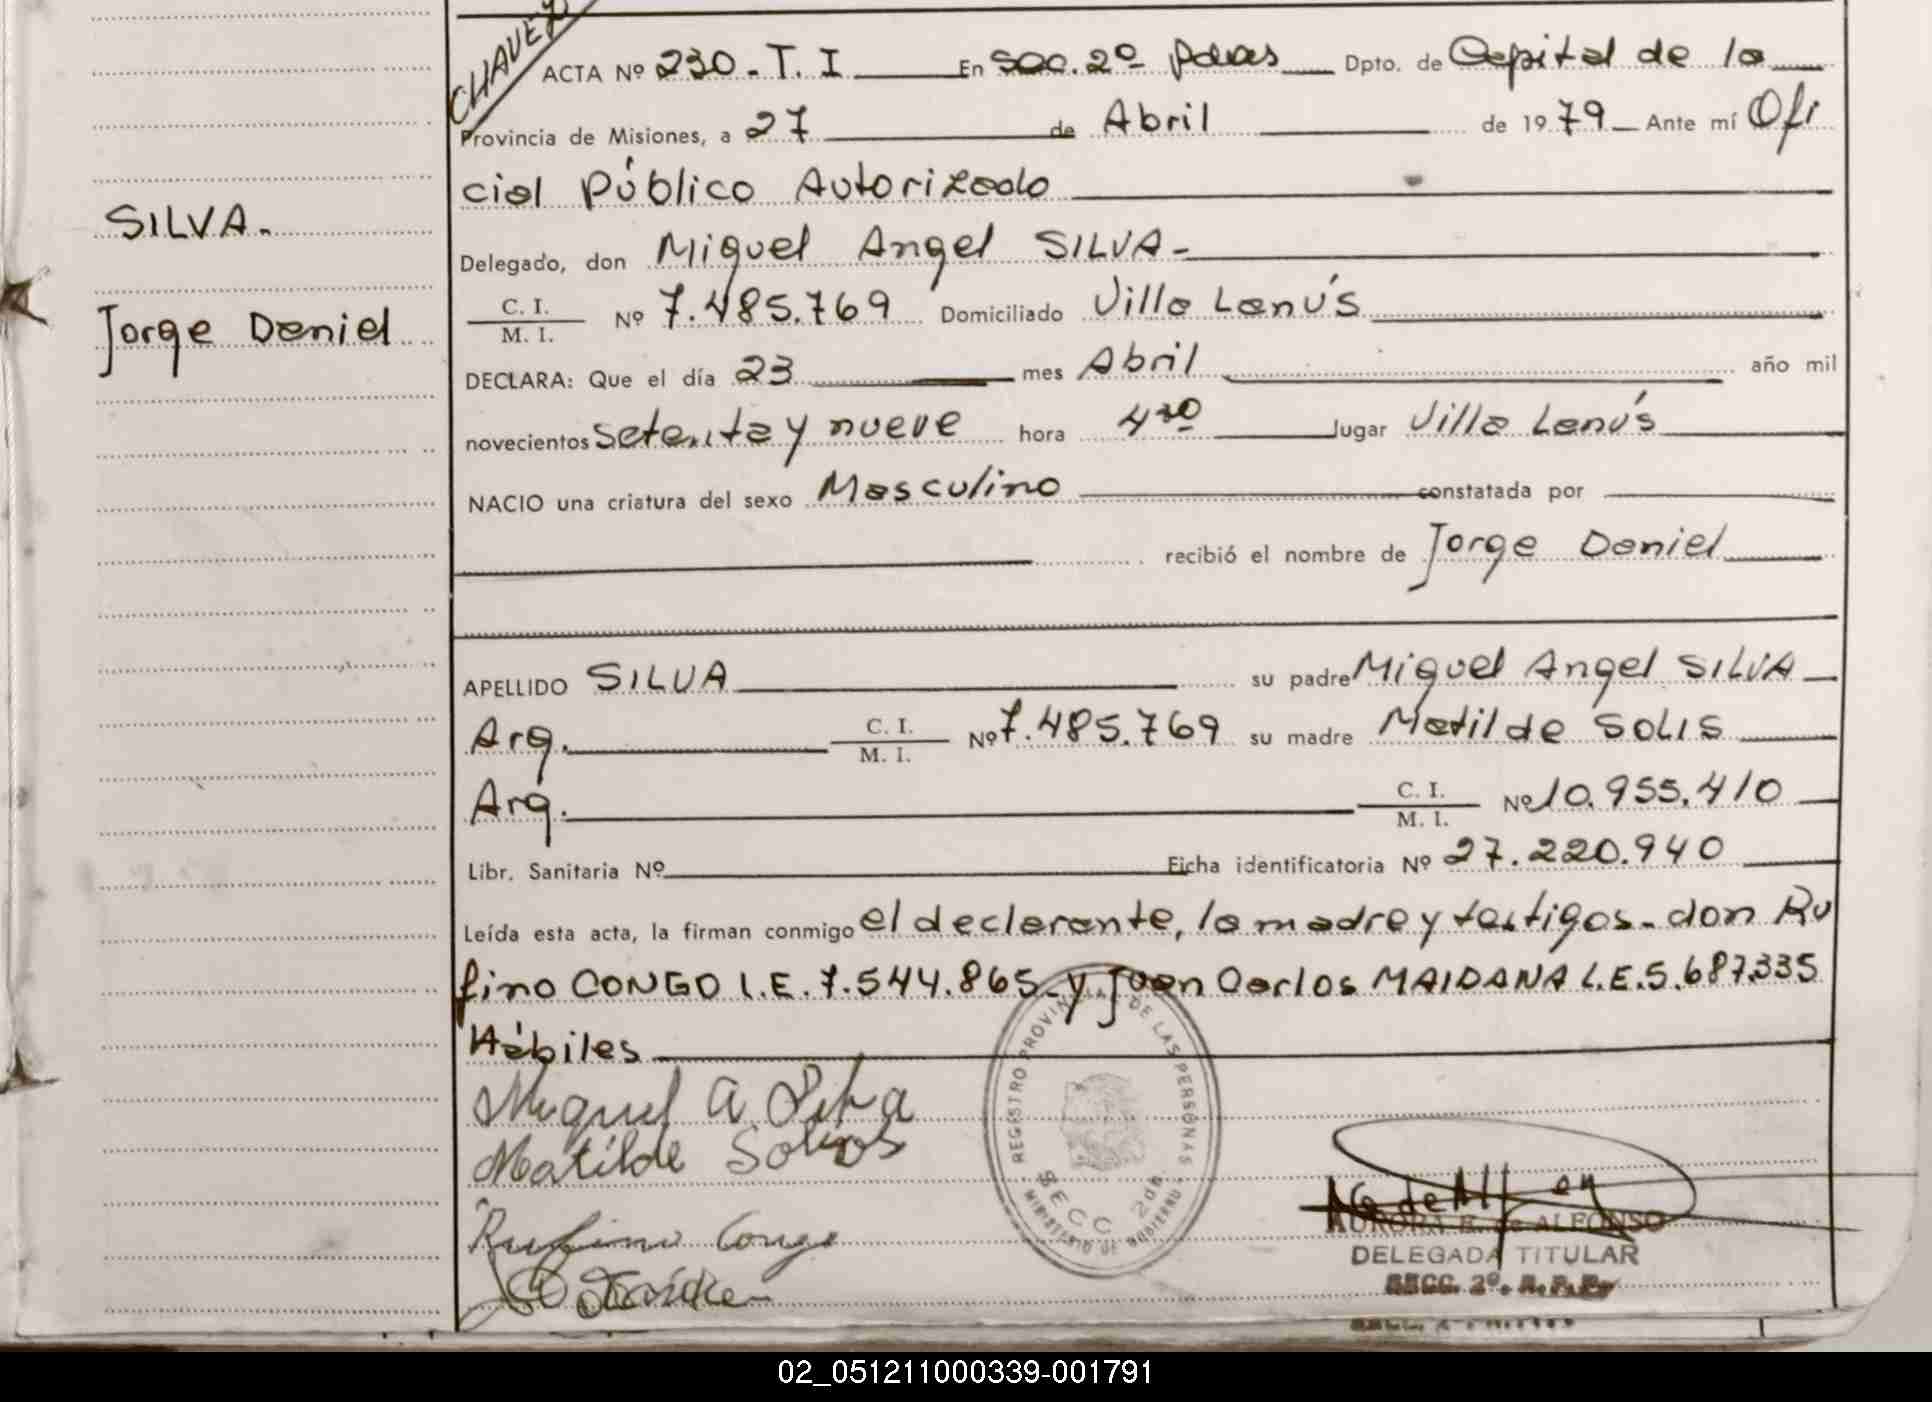 CHAVEZ
ACTA Nº 230-T. I En Sec. 2º Pdas Dpto. de Capital de la
Provincia de Misiones, a 27 de Abril de 1979 Ante mí Ofi
cial Público Autorizado
SILVA.
Delegado, don Miguel Angel SILVA-
C. I.
M. I.
Nº 7.485.769 Domiciliado Villa Lanús
Jorge Daniel
DECLARA: Que el día 23 mes Abril año mil
novecientos setenta y nueve hora 4 30 lugar Villa Lanús
NACIO una criatura del sexo Masculino constatada por
recibió el nombre de Jorge Daniel
APELLIDO SILVA su padre Miguel Angel SILVA
Arg. C. I. M. I. Nº 7.485.769 su madre Matilde SOLIS
Arg. C. I. M. I. Nº 10.955.410
Libr. Sanitaria Nº Ficha identificatoria Nº 27.220.940
Leída esta acta, la firman conmigo el declarante, la madre y testigos- don Ru
fino CONGO L.E. 7.544.865- y Juan Carlos MAIDANA L.E. 5.687.335
Hábiles
Miguel A Silva
Matilde
Rufino Congo
REGISTRO PROVINCIAL DE LAS PERSONAS
SECC 2da.
MINISTERIO DE GOBIERNO
AURORA E. de ALFONSO
DELEGADA TITULAR
SECC. 2º. R.P.P.
02_051211000339-001791